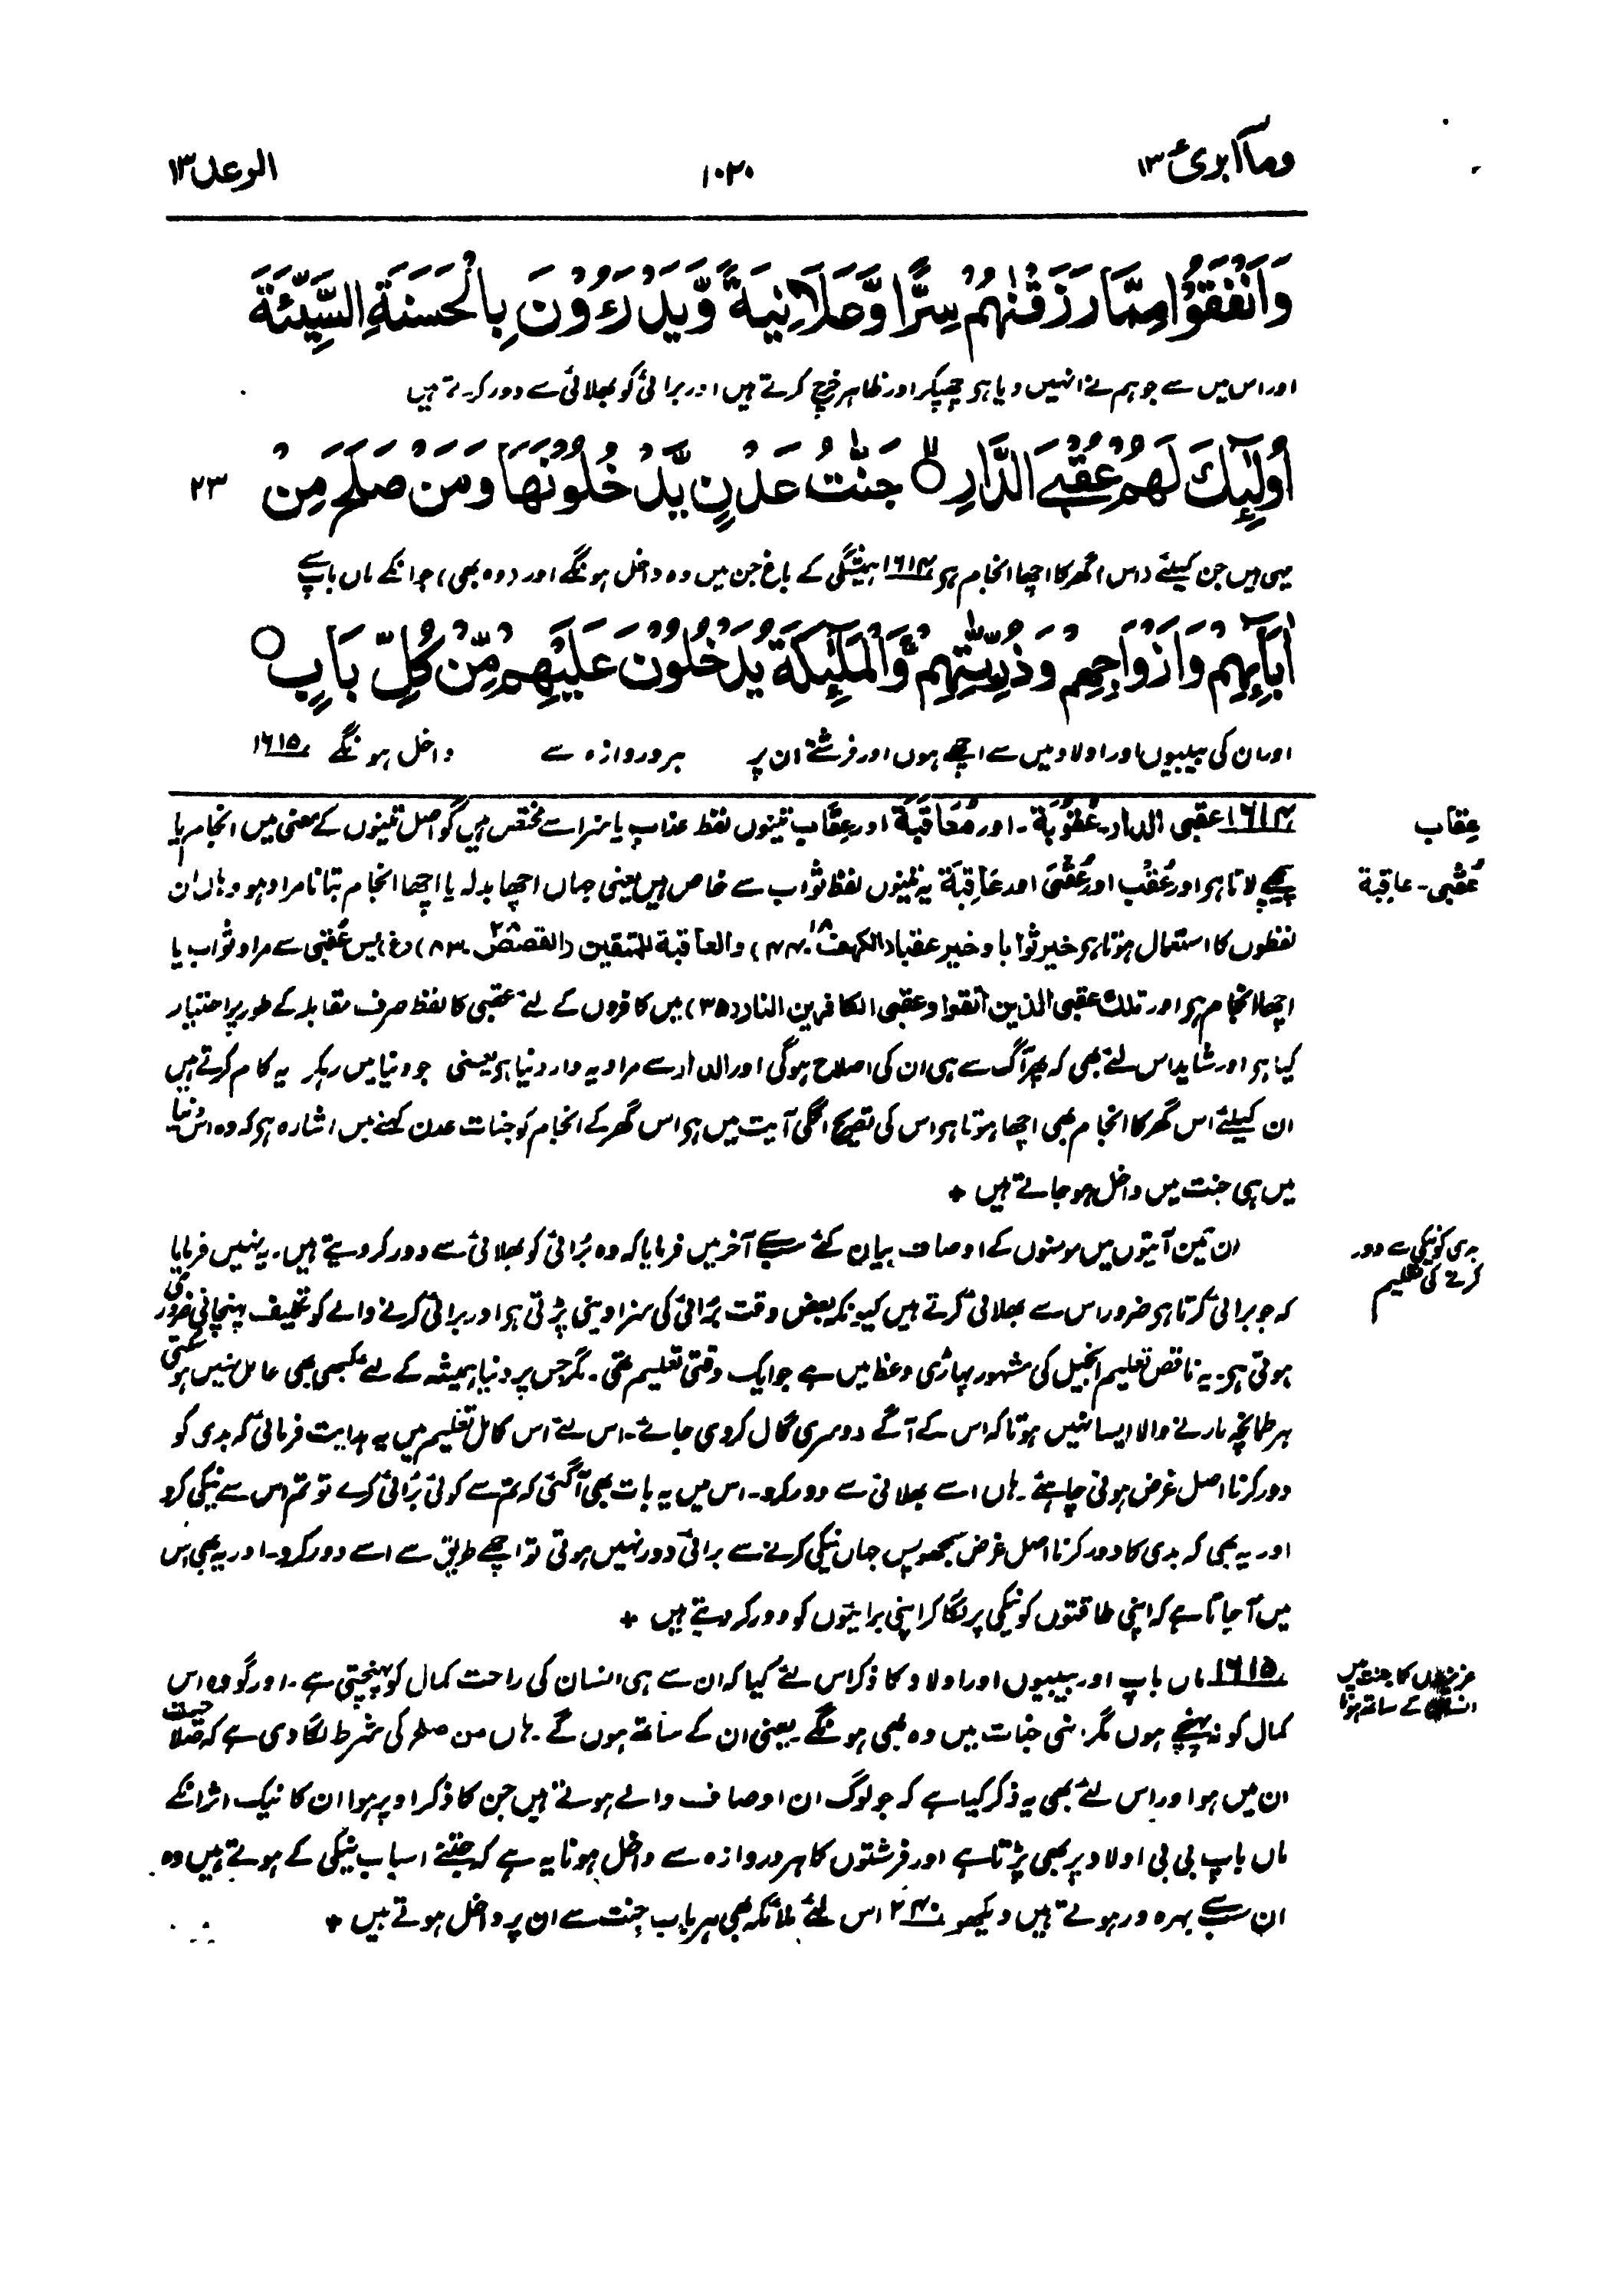 ومآ ابرئ ١٣
١٠٢٠
الرعد ١٣
وَاَنْفَقُوْا مِمَّا رَزَقْنٰهُمْ سِرًّا وَّعَلَانِيَةً وَّيَدْرَءُوْنَ بِالْحَسَنَةِ السَّيِّئَةَ
اور اس میں سے جو ہم نے انہیں دیا ہو چھپکر اور ظاہر خرچ کرتے ہیں اور برائی کو بھلائی سے دور کرتے ہیں
اُولٰٓئِكَ لَهُمْ عُقْبَى الدَّارِ ۙ جَنّٰتُ عَدْنٍ يَّدْخُلُوْنَهَا وَمَنْ صَلَحَ مِنْ
٢٣
یہی ہیں جن کیلئے (اس) گھر کا اچھا انجام ہو ١٦١٤ ہمیشگی کے باغ جن میں وہ داخل ہونگے اور (وہ بھی) جو انکے ماں باپ
اٰبَآئِهِمْ وَاَزْوَاجِهِمْ وَذُرِّيّٰتِهِمْ وَالْمَلٰٓئِكَةُ يَدْخُلُوْنَ عَلَيْهِمْ مِّنْ كُلِّ بَابٍ
اور ان کی بیبیوں اور اولاد میں سے اچھے ہوں اور فرشتے ان پر ہر دروازہ سے داخل ہونگے ١٦١٥
عِقاب
١٦١٤ عقبی الدار۔ عُقُوبَة۔ اور مُعَاقَبَة اور عِقَاب تینوں لفظ عذاب یا سزا سے مختص ہیں گو اصل تینوں کے معنی میں انجام یا
عُقْبی۔ عاقِبة
پیچھے لاتا ہو اور عُقْب اور عُقْبَى اور عَاقِبَة یہ تینوں لفظ ثواب سے خاص ہیں یعنی جہاں اچھا بدلہ یا اچھا انجام بتانا مراد ہو وہاں ان
لفظوں کا استعمال ہوتا ہو خیر ثوابا وخیر عقبا (الکھف ١٨۔ ٤٤) والعاقبة للمتقین (القصص ٢٨۔ ٨٣) (غ) پس عُقبی سے مراد ثواب یا
اچھا انجام ہو اور تلك عقبی الذین اتقوا وعقبی الکافرین النار (٣٥) میں کافروں کے لئے عقبی کا لفظ صرف مقابلہ کے طور پر اختیار
کیا ہو اور شاید اس لئے بھی کہ پھر آگ سے ہی ان کی اصلاح ہوگی اور الدار سے مراد یہ دار دنیا ہو یعنی جو دنیا میں رہکر یہ کام کرتے ہیں
ان کیلئے اس گھر کا انجام بھی اچھا ہوتا ہو اس کی تصریح اگلی آیت میں ہو اس گھر کے انجام کو جنات عدن کہنے میں اشارہ ہو کہ وہ اس دنیا
میں ہی جنت میں داخل ہو جاتے ہیں +
بدی کو نیکی سے دور
کرنے کی تعلیم
ان تین آیتوں میں مومنوں کے اوصاف بیان کئے سبسے آخر میں فرمایا کہ وہ بُرائی کو بھلائی سے دور کر دیتے ہیں۔ یہ نہیں فرمایا
کہ جو برائی کرتا ہو ضرور اس سے بھلائی کرتے ہیں کیونکہ بعض وقت بُرائی کی سزا دینی پڑتی ہو اور برائی کرنے والے کو تکلیف پہنچانی ضروری
ہوتی ہو۔ یہ ناقص تعلیم انجیل کی مشہور پہاڑی وعظ میں ہے جو ایک وقتی تعلیم تھی۔ مگر جس پر دنیا ہمیشہ کے لئے کبھی بھی عامل نہیں ہو سکتی
ہر طمانچہ مارنے والا ایسا نہیں ہوتا کہ اس کے آگے دوسری گال کر دی جائے۔ اس لئے اس کامل تعلیم میں یہ ہدایت فرمائی کہ بدی کو
دور کرنا اصل غرض ہونی چاہئے۔ ہاں اسے بھلائی سے دور کرو۔ اس میں یہ بات بھی آگئی کہ تم سے کوئی بُرائی کرے تو تم اس سے نیکی کرو
اور یہ بھی کہ بدی کا دور کرنا اصل غرض سمجھو پس جہاں نیکی کرنے سے برائی دور نہیں ہوتی تو اچھے طریق سے اسے دور کرو۔ اور یہ بھی اس
میں آجاتا ہے کہ اپنی طاقتوں کو نیکی پر لگا کر اپنی برائیوں کو دور کر دیتے ہیں +
عزیزوں کا جنت میں
انسان کے ساتھ ہونا
١٦١٥ ماں باپ اور بیبیوں اور اولاد کا ذکر اس لئے کیا کہ ان سے ہی انسان کی راحت کمال کو پہنچتی ہے۔ اور گو وہ اس
کمال کو نہ پہنچے ہوں مگر انہی جنات میں وہ بھی ہونگے یعنی ان کے ساتھ ہوں گے۔ ہاں من صلح کی شرط لگا دی ہے کہ صلاحیت
ان میں ہو اور اس لئے بھی یہ ذکر کیا ہے کہ جو لوگ ان اوصاف والے ہوتے ہیں جن کا ذکر اوپر ہوا ان کا نیک اثر انکے
ماں باپ بی بی اولاد پر بھی پڑتا ہے اور فرشتوں کا ہر دروازہ سے داخل ہونا یہ ہے کہ جتنے اسباب نیکی کے ہوتے ہیں وہ
ان سبسے بہرہ ور ہوتے ہیں دیکھو ٢٤٠ اس لئے ملائکہ بھی ہر باب جنت سے ان پر داخل ہوتے ہیں +